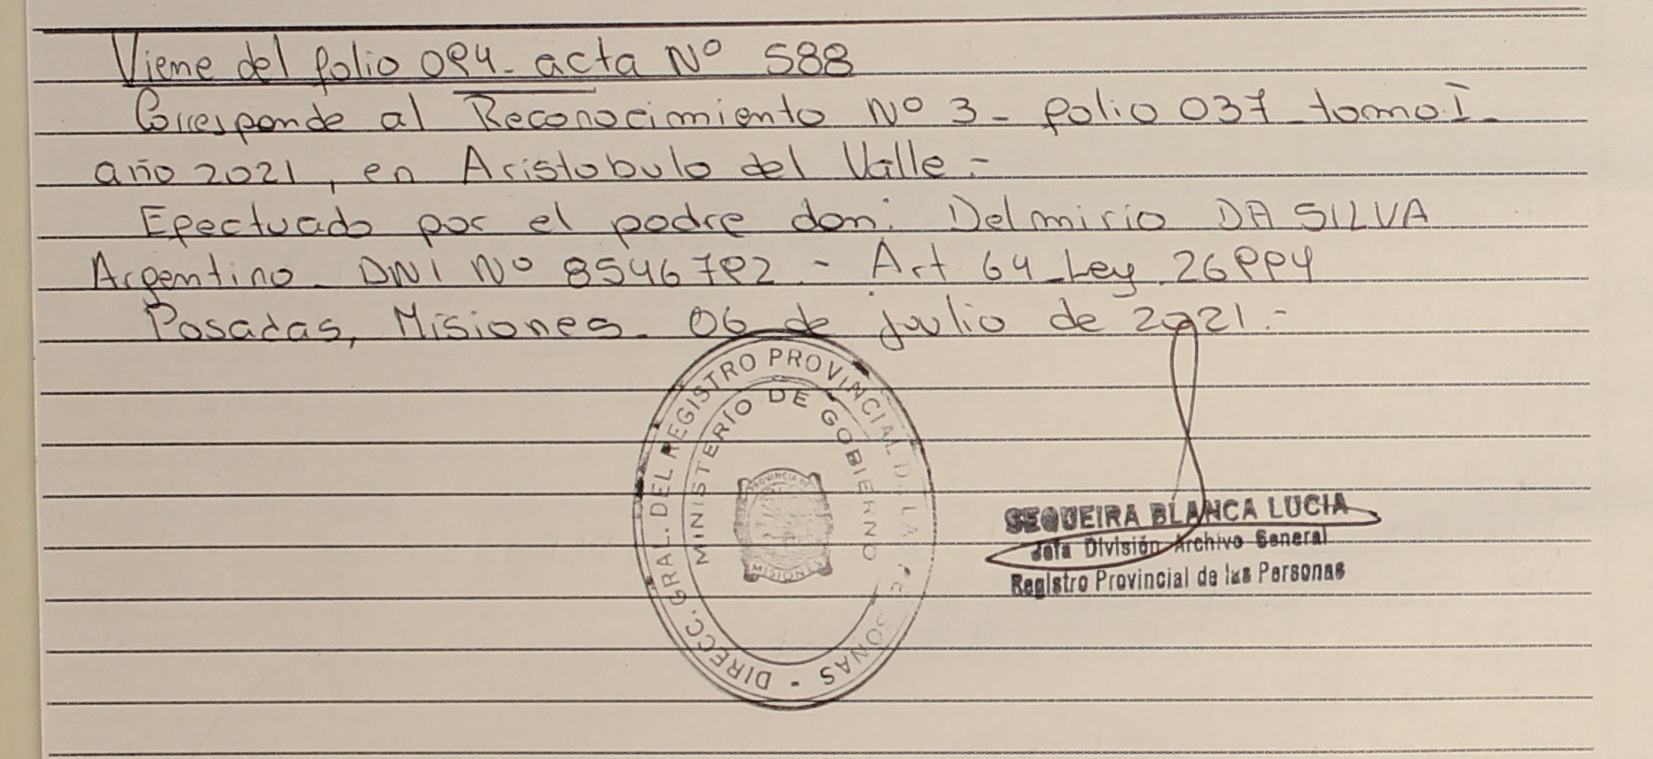 Viene del folio 094 - acta Nº 588
Corresponde al Reconocimiento Nº 3 - folio 037 - tomo I -
año 2021, en Aristobulo del Valle.-
Efectuado por el padre don: Delmirio DA SILVA
Argentino - DNI Nº 8546792 - Art 64 - Ley 26994
Posadas, Misiones - 06 de julio de 2021.-
DIRECC. GRAL. DEL REGISTRO PROVINCIAL DE LAS PERSONAS -
MINISTERIO DE GOBIERNO
PROVINCIA DE
MISIONES
SEQUEIRA BLANCA LUCIA
Jefa División Archivo General
Registro Provincial de las Personas